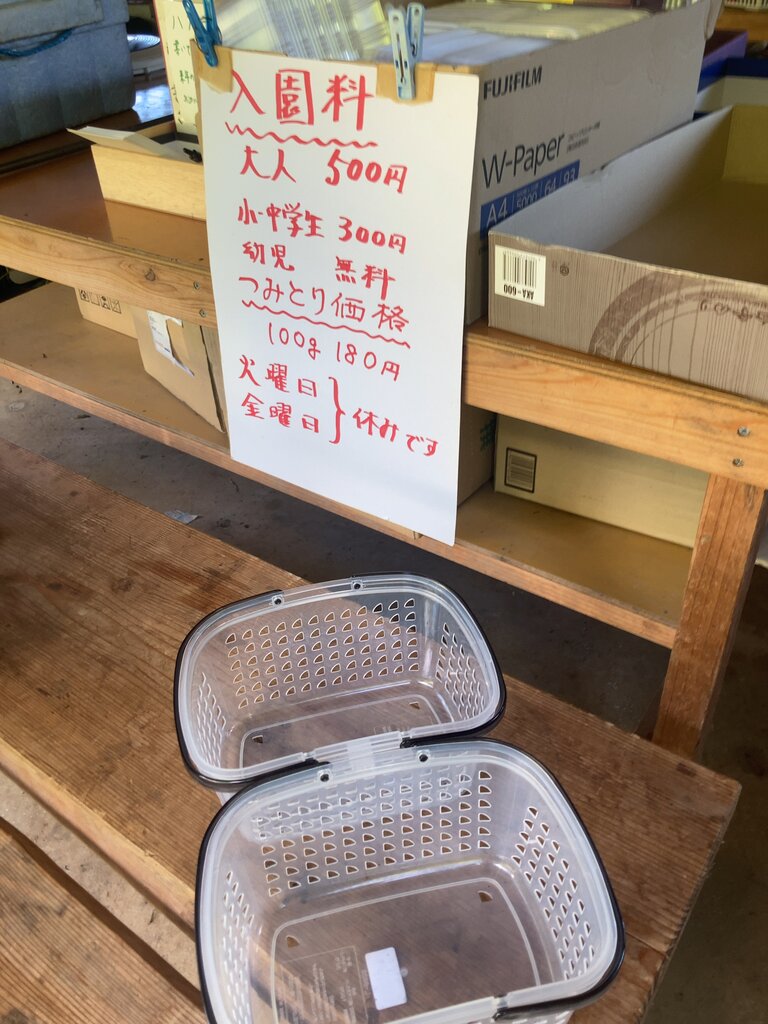 入園料
大人 500円
小・中学生 300円
幼児 無料
つみとり価格
100g 180円
火曜日
金曜日 } 休みです
FUJIFILM
W-Paper
A4
5000
64
93
AKA-600